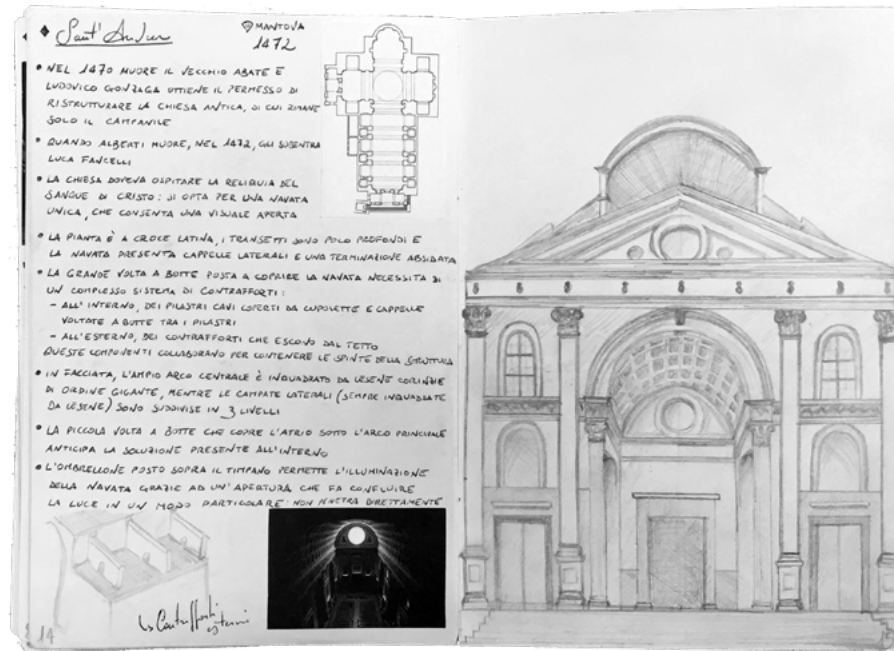 Sant'Andrea
MANTOVA
1472
• NEL 1470 MUORE IL VECCHIO ABATE E
LUDOVICO GONZAGA OTTIENE IL PERMESSO DI
RISTRUTTURARE LA CHIESA ANTICA, DI CUI RIMANE
SOLO IL CAMPANILE
• QUANDO ALBERTI MUORE, NEL 1472, GLI SUBENTRA
LUCA FANCELLI
• LA CHIESA DOVEVA OSPITARE LA RELIQUIA DEL
SANGUE DI CRISTO: SI OPTA PER UNA NAVATA
UNICA, CHE CONSENTA UNA VISUALE APERTA
• LA PIANTA È A CROCE LATINA, I TRANSETTI SONO POCO PROFONDI E
LA NAVATA PRESENTA CAPPELLE LATERALI E UNA TERMINAZIONE ABSIDATA
• LA GRANDE VOLTA A BOTTE POSTA A COPRIRE LA NAVATA NECESSITA DI
UN COMPLESSO SISTEMA DI CONTRAFFORTI:
- ALL'INTERNO, DEI PILASTRI CAVI COPERTI DA CUPOLETTE E CAPPELLE
VOLTATE A BOTTE TRA I PILASTRI
- ALL'ESTERNO, DEI CONTRAFFORTI CHE ESCONO DAL TETTO
QUESTE COMPONENTI COLLABORANO PER CONTENERE LE SPINTE DELLA STRUTTURA
• IN FACCIATA, L'AMPIO ARCO CENTRALE È INQUADRATO DA LESENE CORINZIE
DI ORDINE GIGANTE, MENTRE LE CAMPATE LATERALI (SEMPRE INQUADRATE
DA LESENE) SONO SUDDIVISE IN 3 LIVELLI
• LA PICCOLA VOLTA A BOTTE CHE COPRE L'ATRIO SOTTO L'ARCO PRINCIPALE
ANTICIPA LA SOLUZIONE PRESENTE ALL'INTERNO
• L'OMBRELLONE POSTO SOPRA IL TIMPANO PERMETTE L'ILLUMINAZIONE
DELLA NAVATA GRAZIE AD UN'APERTURA CHE FA CONFLUIRE
LA LUCE IN UN MODO PARTICOLARE: NON PENETRA DIRETTAMENTE
↳ Contrafforti
esterni
14